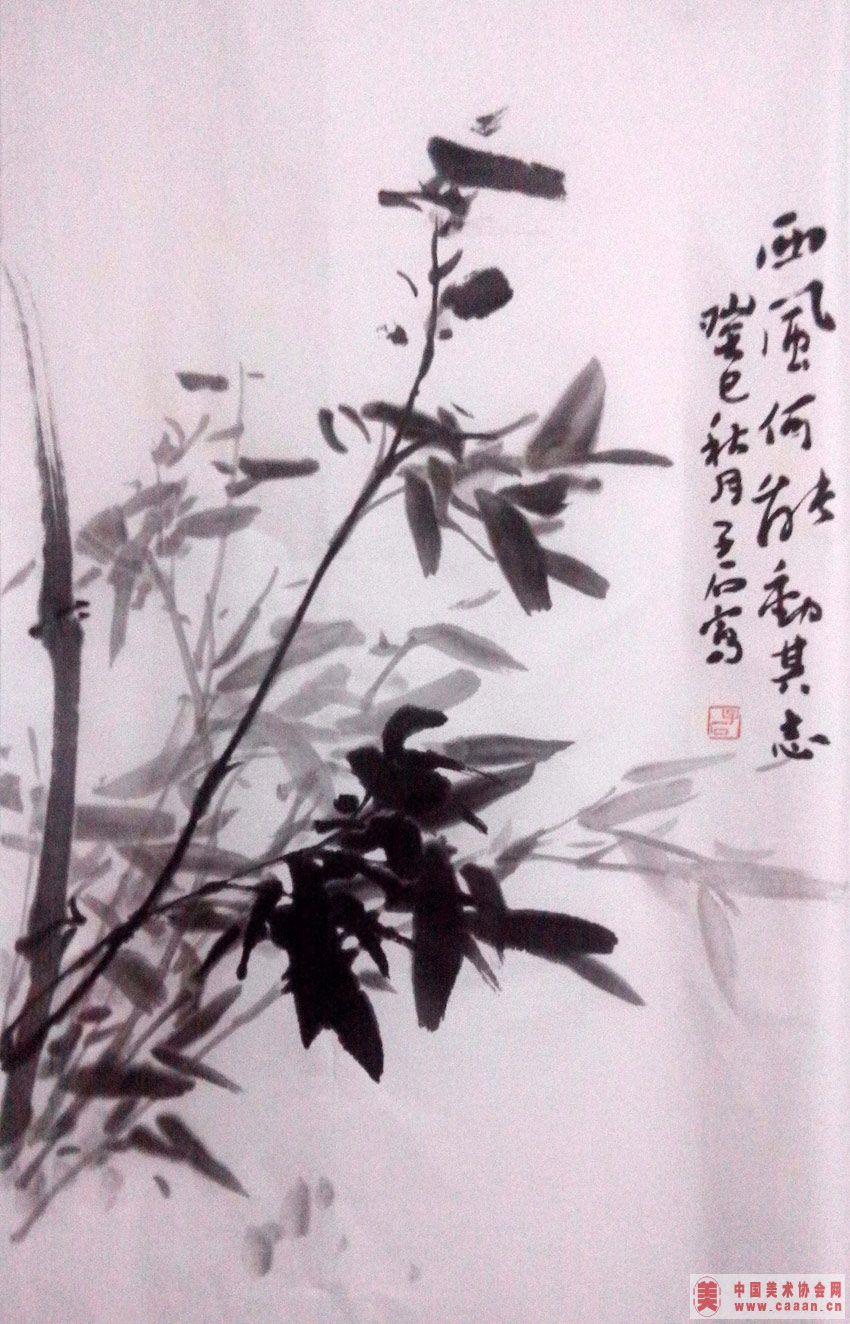 西風何能動其志
癸巳秋月子石寫
子石
美
中国美术协会网
www.caaan.cn